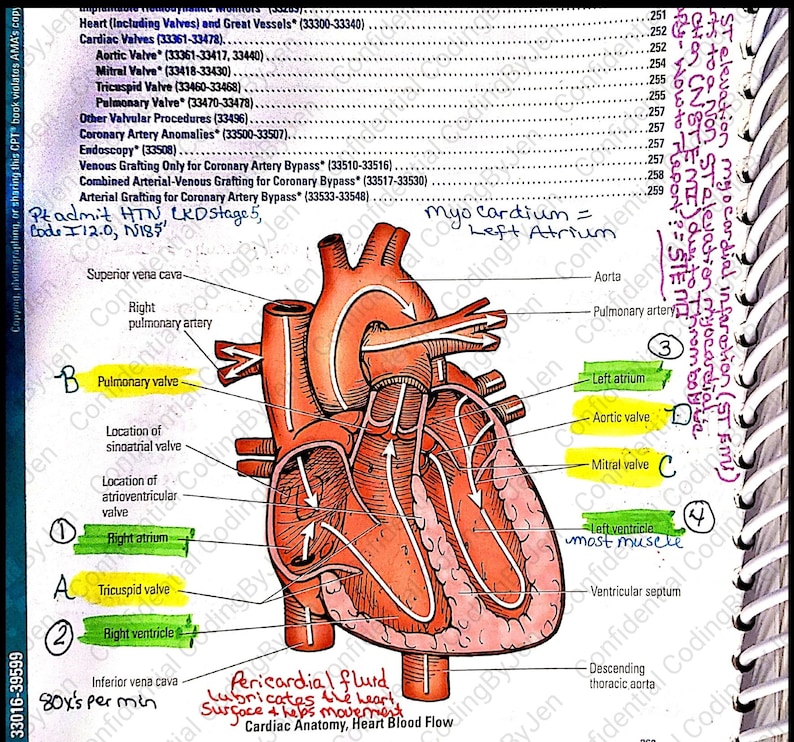 Implantable Hemodynamic Monitors (33289)
Heart (Including Valves) and Great Vessels* (33300-33340) 251
Cardiac Valves (33361-33478) 252
Aortic Valve* (33361-33417, 33440) 252
Mitral Valve* (33418-33430) 254
Tricuspid Valve (33460-33468) 255
Pulmonary Valve* (33470-33478) 255
Other Valvular Procedures (33496) 257
Coronary Artery Anomalies* (33500-33507) 257
Endoscopy* (33508) 257
Venous Grafting Only for Coronary Artery Bypass* (33510-33516) 257
Combined Arterial-Venous Grafting for Coronary Artery Bypass* (33517-33530) 258
Arterial Grafting for Coronary Artery Bypass* (33533-33548) 259
Pt admit HTN CKD stage 5,
Code I12.0, N18.5
Myocardium =
Left Atrium
Superior vena cava
Aorta
Right
pulmonary artery
Pulmonary artery
3
B Pulmonary valve
Left atrium
Aortic valve D
Location of
sinoatrial valve
Mitral valve C
Location of
atrioventricular
valve
4
1 Right atrium
Left ventricle
most muscle
A Tricuspid valve
Ventricular septum
2 Right ventricle
Descending
thoracic aorta
Inferior vena cava
80x's per min
Pericardial fluid
lubricates the heart
Surface & helps movement
Cardiac Anatomy, Heart Blood Flow
Copying, photographing, or sharing this CPT® book violates AMA's copy
33016-39599
ST elevation myocardial infarction (STEMI)
to a non ST elevation myocardial
(NSTEMI) due to
= STEMI
Confidential CodingByJen